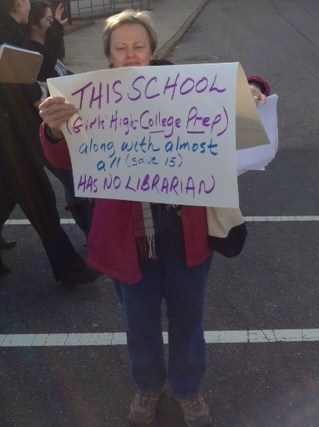 THIS SCHOOL
(Girls' High-College Prep)
along with almost
all (save 15)
HAS NO LIBRARIAN